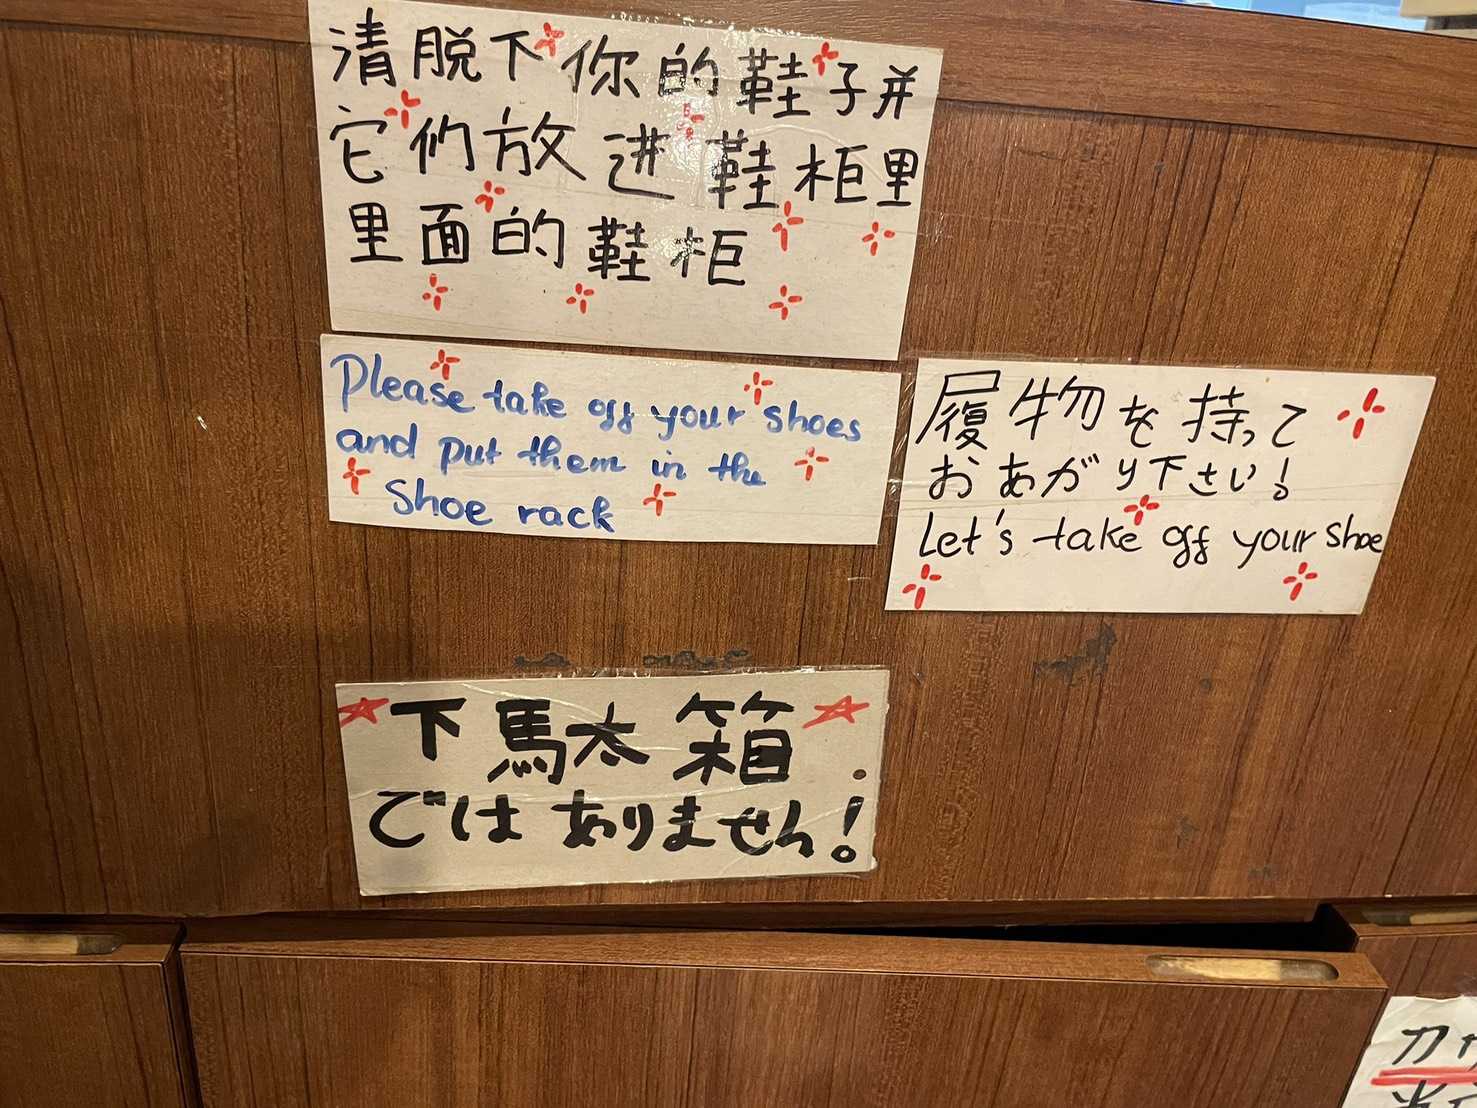 清脱下你的鞋子并
它们放进鞋柜里
里面的鞋柜
Please take off your shoes
and put them in the
Shoe rack
履物を持って
おあがり下さい!
Let's take off your shoe
下駄箱
ではありません!